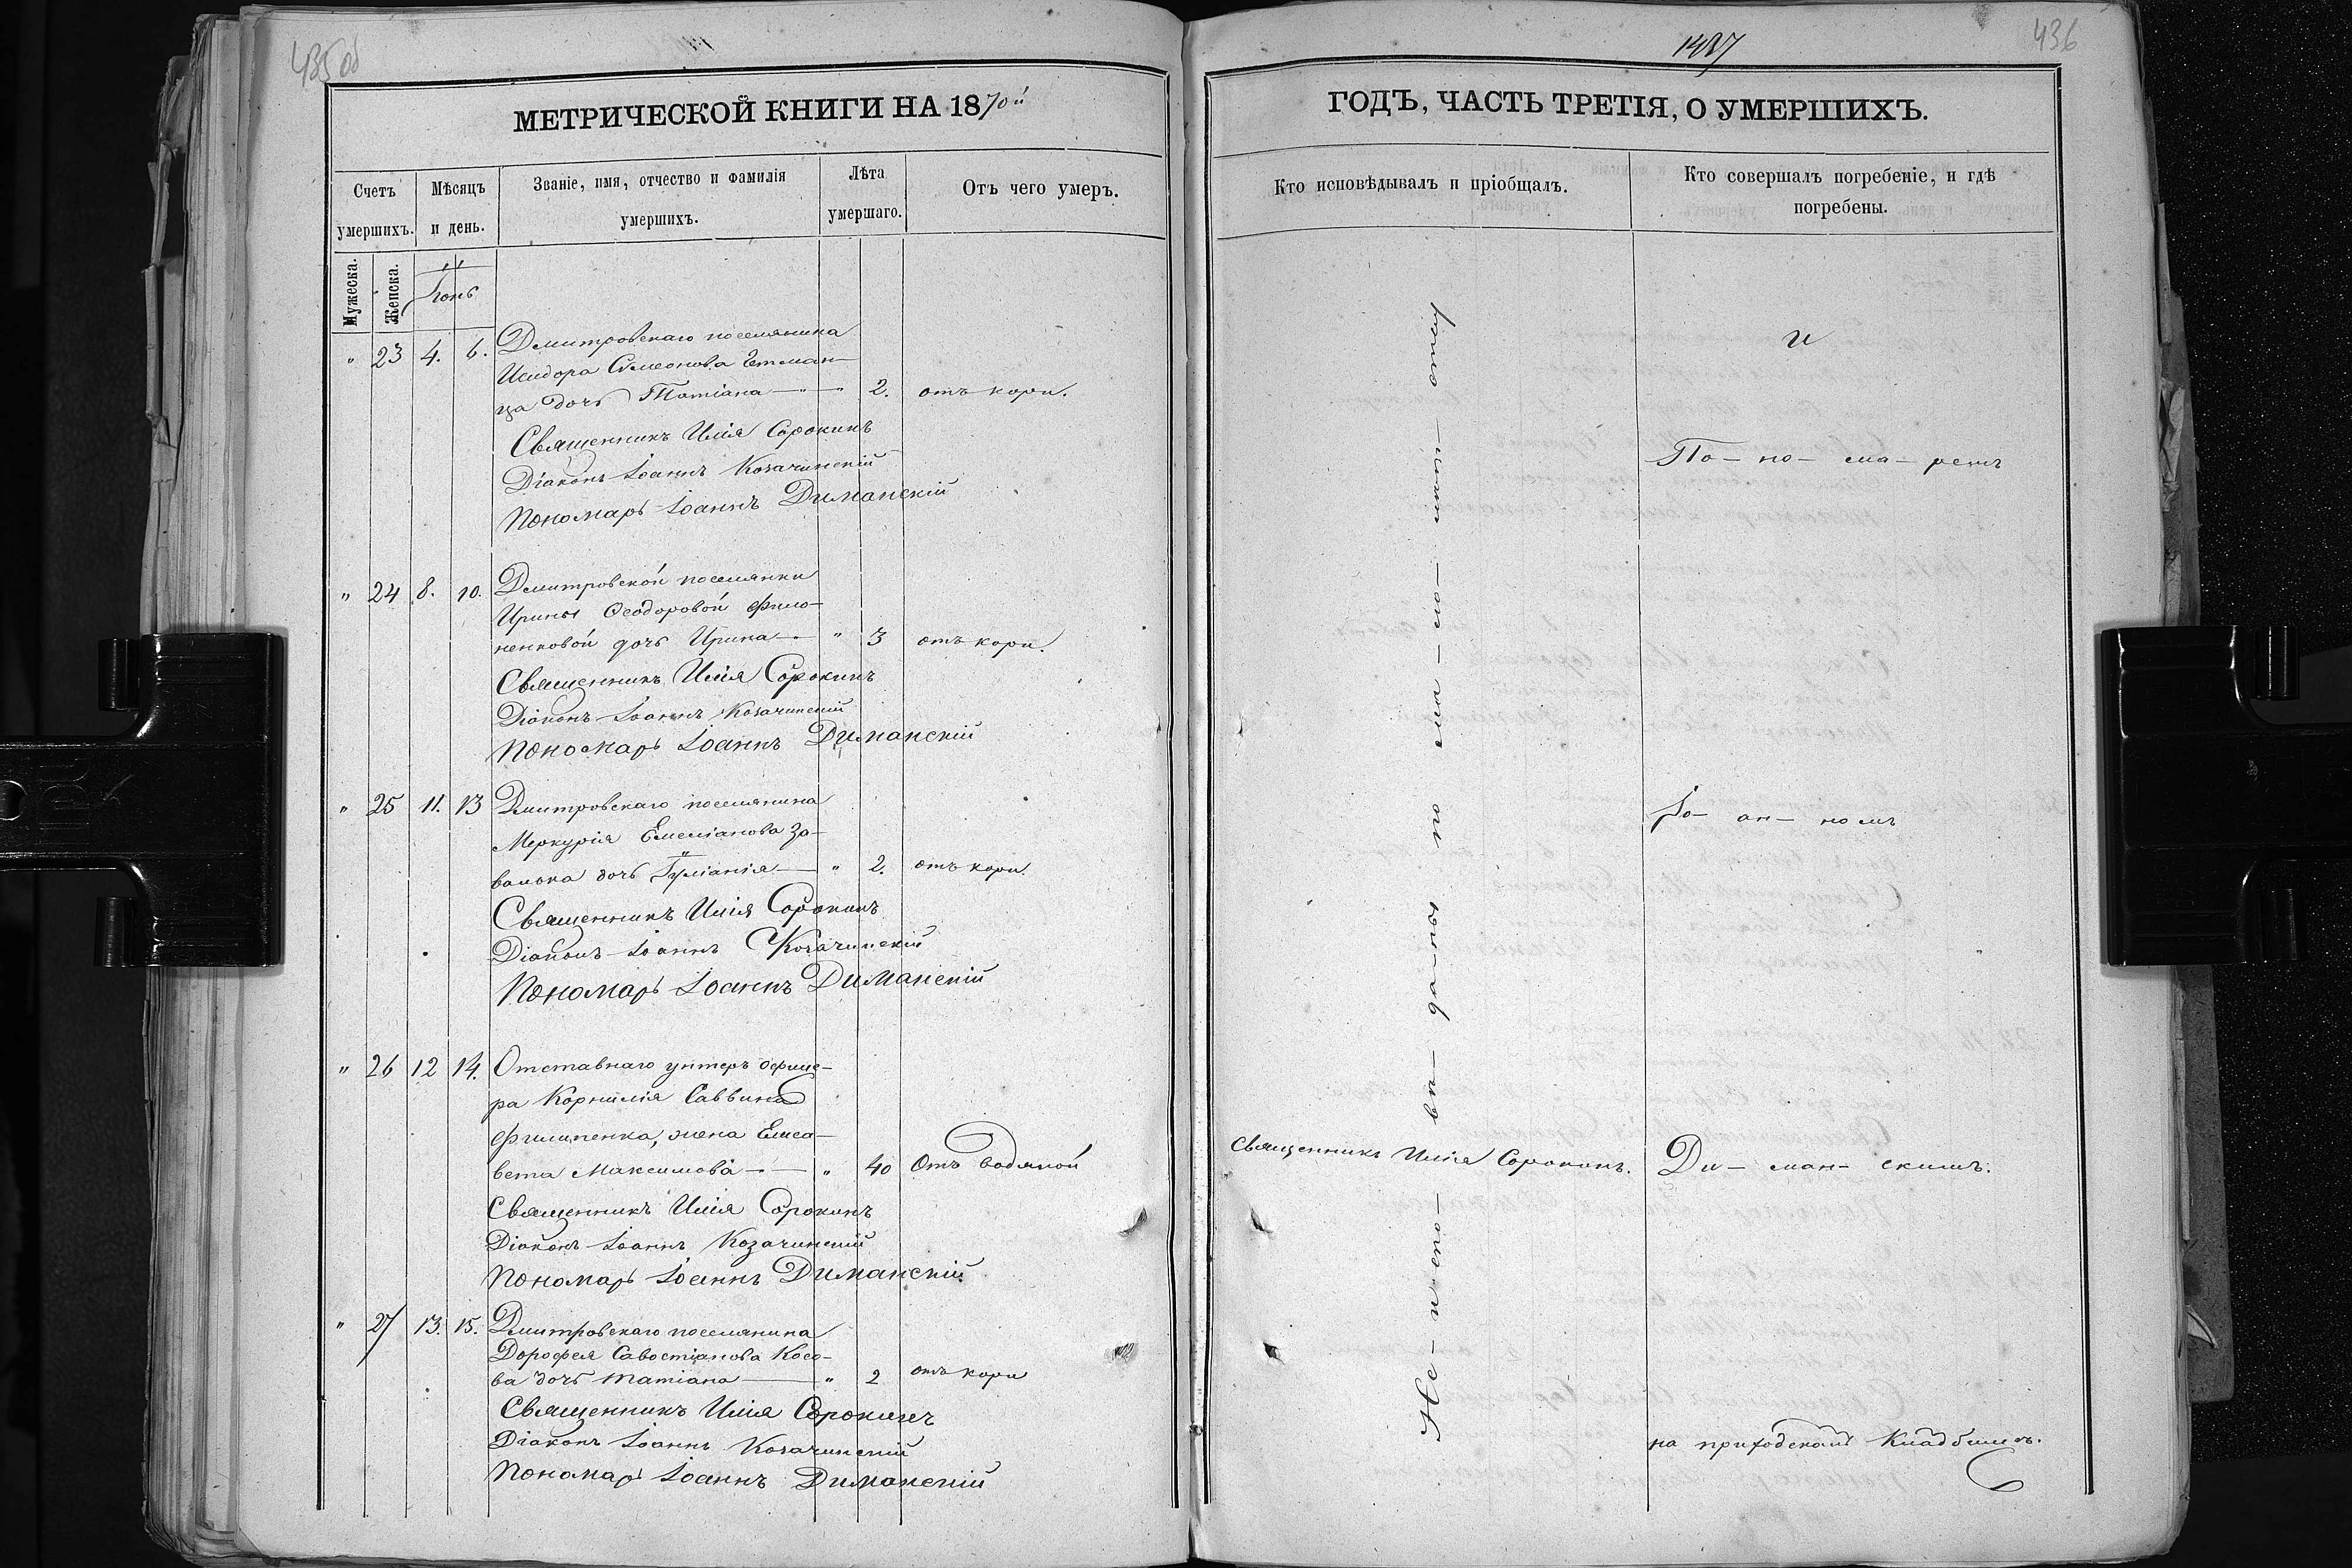 435 об
МЕТРИЧЕСКОЙ КНИГИ НА 1870й
Счетъ умершихъ.
Мѣсяцъ и день.
Званіе, имя, отчество и фамилія умершихъ.
Лѣта умершаго.
Отъ чего умеръ.
Мужеска.
Женска.
Іюнь
" 23 4. 6. Дмитровскаго поселянина
Исидора Симеонова Гетман-
ца дочь Татіана — " — " 2. отъ кори.
Священникъ Илія Сорокинъ
Діаконъ Іоаннъ Козачинскій
Пономарь Іоаннъ Диманскій
" 24 8. 10. Дмитровской поселянки
Ирины Ѳеодоровой Фило-
ненковой дочь Ирина — " 3 отъ кори.
Священникъ Илія Сорокинъ
Діаконъ Іоаннъ Козачинскій
Пономарь Іоаннъ Диманскій
" 25 11. 13 Дмитровскаго поселянина
Меркурія Емеліанова За-
валока дочь Іуліанія — " 2. отъ кори.
Священникъ Илія Сорокинъ
Діаконъ Іоаннъ Козачинскій
Пономарь Іоаннъ Диманскій
" 26 12 14. Отставнаго унтеръ офице-
ра Корнилія Саввина
Филипенка, жена Елиса-
вета Максимова — " 40 Отъ водяной
Священникъ Илія Сорокинъ
Діаконъ Іоаннъ Козачинскій
Пономарь Іоаннъ Диманскій
" 27 13. 15. Дмитровскаго поселянина
Дорофея Савостіанова Косо-
ва дочь Татіана — " 2 отъ кори
Священникъ Илія Сорокинъ
Діаконъ Іоаннъ Козачинскій
Пономарь Іоаннъ Диманскій
436
ГОДЪ, ЧАСТЬ ТРЕТІЯ, О УМЕРШИХЪ.
Кто исповѣдывалъ и пріобщалъ.
Кто совершалъ погребеніе, и гдѣ погребены.
Не- и спо- вѣ- да-ны по ма-ло-лѣт-ству
Священникъ Илія Сорокинъ.
и
По- но- ма- ремъ
Іо- ан- номъ
Ди- ман- скимъ.
на приходскомъ Кладбищѣ.